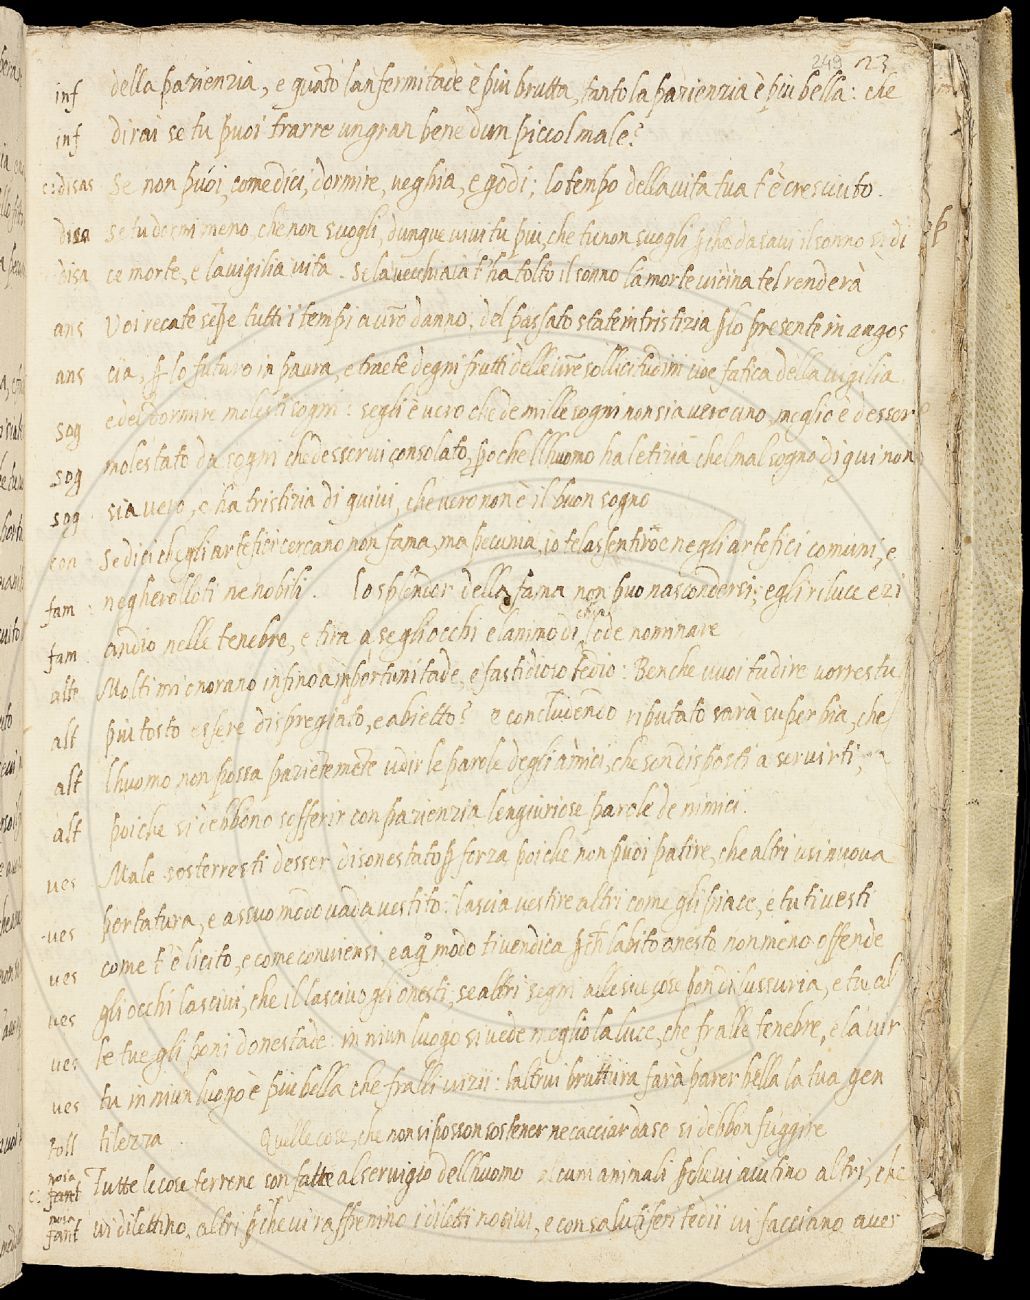 249 123
inf della pazienzia, e quāto lanfermitade è più brutta, tanto la pazienzia è più bella: che
inf dirai se tu puoi trarre ungran bene dun piccol male?
disas Se non puoi, come dici, dormire, veghia, e godi; lo tempo della vita tua t'è cresciuto.
disa Se tu dormi meno, che non suogli, dunque vivi tu piu, che tu non suogli ꝑche da savi il sonno si di
disa ce morte, e la vigilia vita. Se la vecchiaia t'ha tolto il sonno la morte vicina tel renderà
ans Voi recate sēpre tutti i tempi a vr̄o danno, del passato state in tristizia ꝑ lo presente in angos
ans cia, ꝑ lo futuro in paura, e traete degni frutti delle vr̄e sollicitudini cioe fatica della vigilia
sog e del dormire molesti sogni: segli è vero che de mille sogni non sia vero uno, meglio è desser
sog molestato da sogni che desservi consolato, ꝑo che llhuomo ha letizia chel mal sogno di qui non
sog sia vero, e ha tristizia di quivi, che vero non è il buon sogno
con Se dici che gli artefici cercano non fama, ma pecunia, io telassentirò e negli artefici comuni, e
fam negherolloti ne nobili. Lo splendor della fama non può nascondersi; egli riluce ezi
fam andio nelle tenebre, e tira a se gliocchi e lanimo di chi lode nominare
alte Molti mi onorano infino a inportunitade, e fastidioso tedio: Benche vuoi tu dire vorrestu
alt piu tosto essere dispregiato, e abietto? e concludendo riputato sarà superbia, che
alt lhuomo non possa paziētemēte udir le parole degli amici, che son disposti a servirti,
alt poiche si debbono sofferir con pazienzia lengiuriose parole de nimici.
ves Male sosterresti desser disonestato ꝑ forza poiche non puoi patire, che altri usi nuova
ves portatura, e a suo modo vada vestito: lascia vestire altri come gli piace, e tu ti vesti
ves come t'è licito, e come conviensi e a q̄l modo ti vendica ꝑch labito onesto non meno offende
ves gli occhi lascivi, che il lascivo gli onesti, se altri segni alle sue cose pon di lussuria, e tu al
ves le tue gli poni donestade: in niun luogo si vede meglio la luce, che fralle tenebre, e la vir
ves tu in niun luogo è più bella che fralli vizii: laltrui bruttura farà parer bella la tua gen
toll tilezza. Quelle cose, che non si posson sostener ne cacciar da se si debbon fuggire
noia fant Tutte le cose terrene son fatte al servigio dellhuomo alcuni animali ꝑche vi aiutino altri, che
noia fant vi dilettino, altri ꝑche vi raffrenino i diletti nocivi, e con salutiferi tedii vi facciano aver